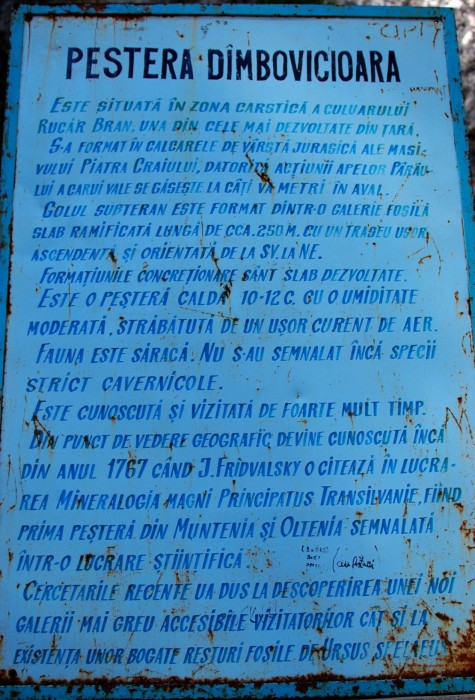 PESTERA DÎMBOVICIOARA
ESTE SITUATĂ ÎN ZONA CARSTICĂ A CULUARULUI
RUCĂR BRAN, UNA DIN CELE MAI DEZVOLTATE DIN ŢARĂ.
S-A FORMAT ÎN CALCARELE DE VÂRSTĂ JURASICĂ ALE MASI-
VULUI PIATRA CRAIULUI, DATORITĂ ACŢIUNII APELOR PÂRÂU-
LUI A CARUI VALE SE GĂSEŞTE LA CÂŢI VA METRI ÎN AVAL.
GOLUL SUBTERAN ESTE FORMAT DINTR-O GALERIE FOSILĂ
SLAB RAMIFICATĂ LUNGĂ DE CCA. 250 M. CU UN TRASEU UŞOR
ASCENDENTĂ ŞI ORIENTATĂ DE LA SV. LA NE.
FORMAŢIUNILE CONCREŢIONARE SÂNT SLAB DEZVOLTATE.
ESTE O PEŞTERĂ CALDĂ 10-12 C. CU O UMIDITATE
MODERATĂ, STRĂBĂTUTĂ DE UN UŞOR CURENT DE AER.
FAUNA ESTE SĂRACĂ. NU S-AU SEMNALAT ÎNCĂ SPECII
STRICT CAVERNICOLE.
ESTE CUNOSCUTĂ ŞI VIZITATĂ DE FOARTE MULT TIMP.
DIN PUNCT DE VEDERE GEOGRAFIC DEVINE CUNOSCUTĂ ÎNCĂ
DIN ANUL 1767 CÂND J. FRIDVALSKY O CITEAZĂ ÎN LUCRA-
REA MINERALOGIA MAGNI PRINCIPATUS TRANSILVANIE, FIIND
PRIMA PEŞTERĂ DIN MUNTENIA ŞI OLTENIA SEMNALATĂ
ÎNTR-O LUCRARE ŞTIINTIFICĂ
CERCETARILE RECENTE UA DUS LA DESCOPERIREA UNEI NOI
GALERII MAI GREU ACCESIBILE VIZITATORILOR CÂT ŞI LA
EXISTENŢA UNOR BOGATE RESTURI FOSILE DE URSUS SPELAEU